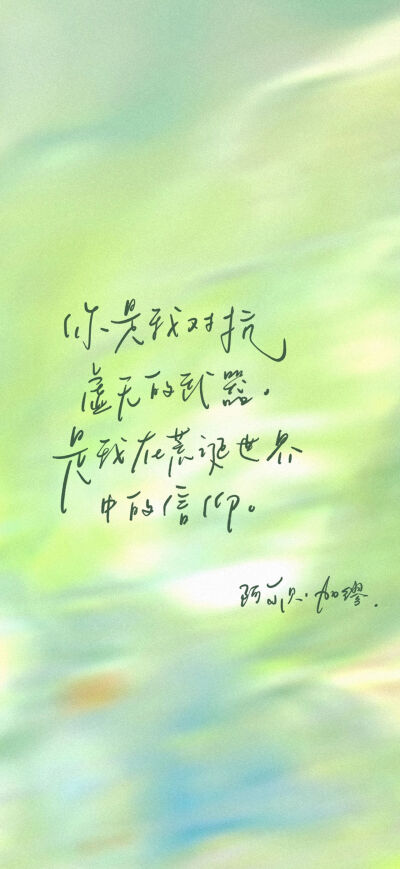 你是我对抗
虚无的武器.
是我在荒诞世界
中的信仰。
阿尔贝·加缪.